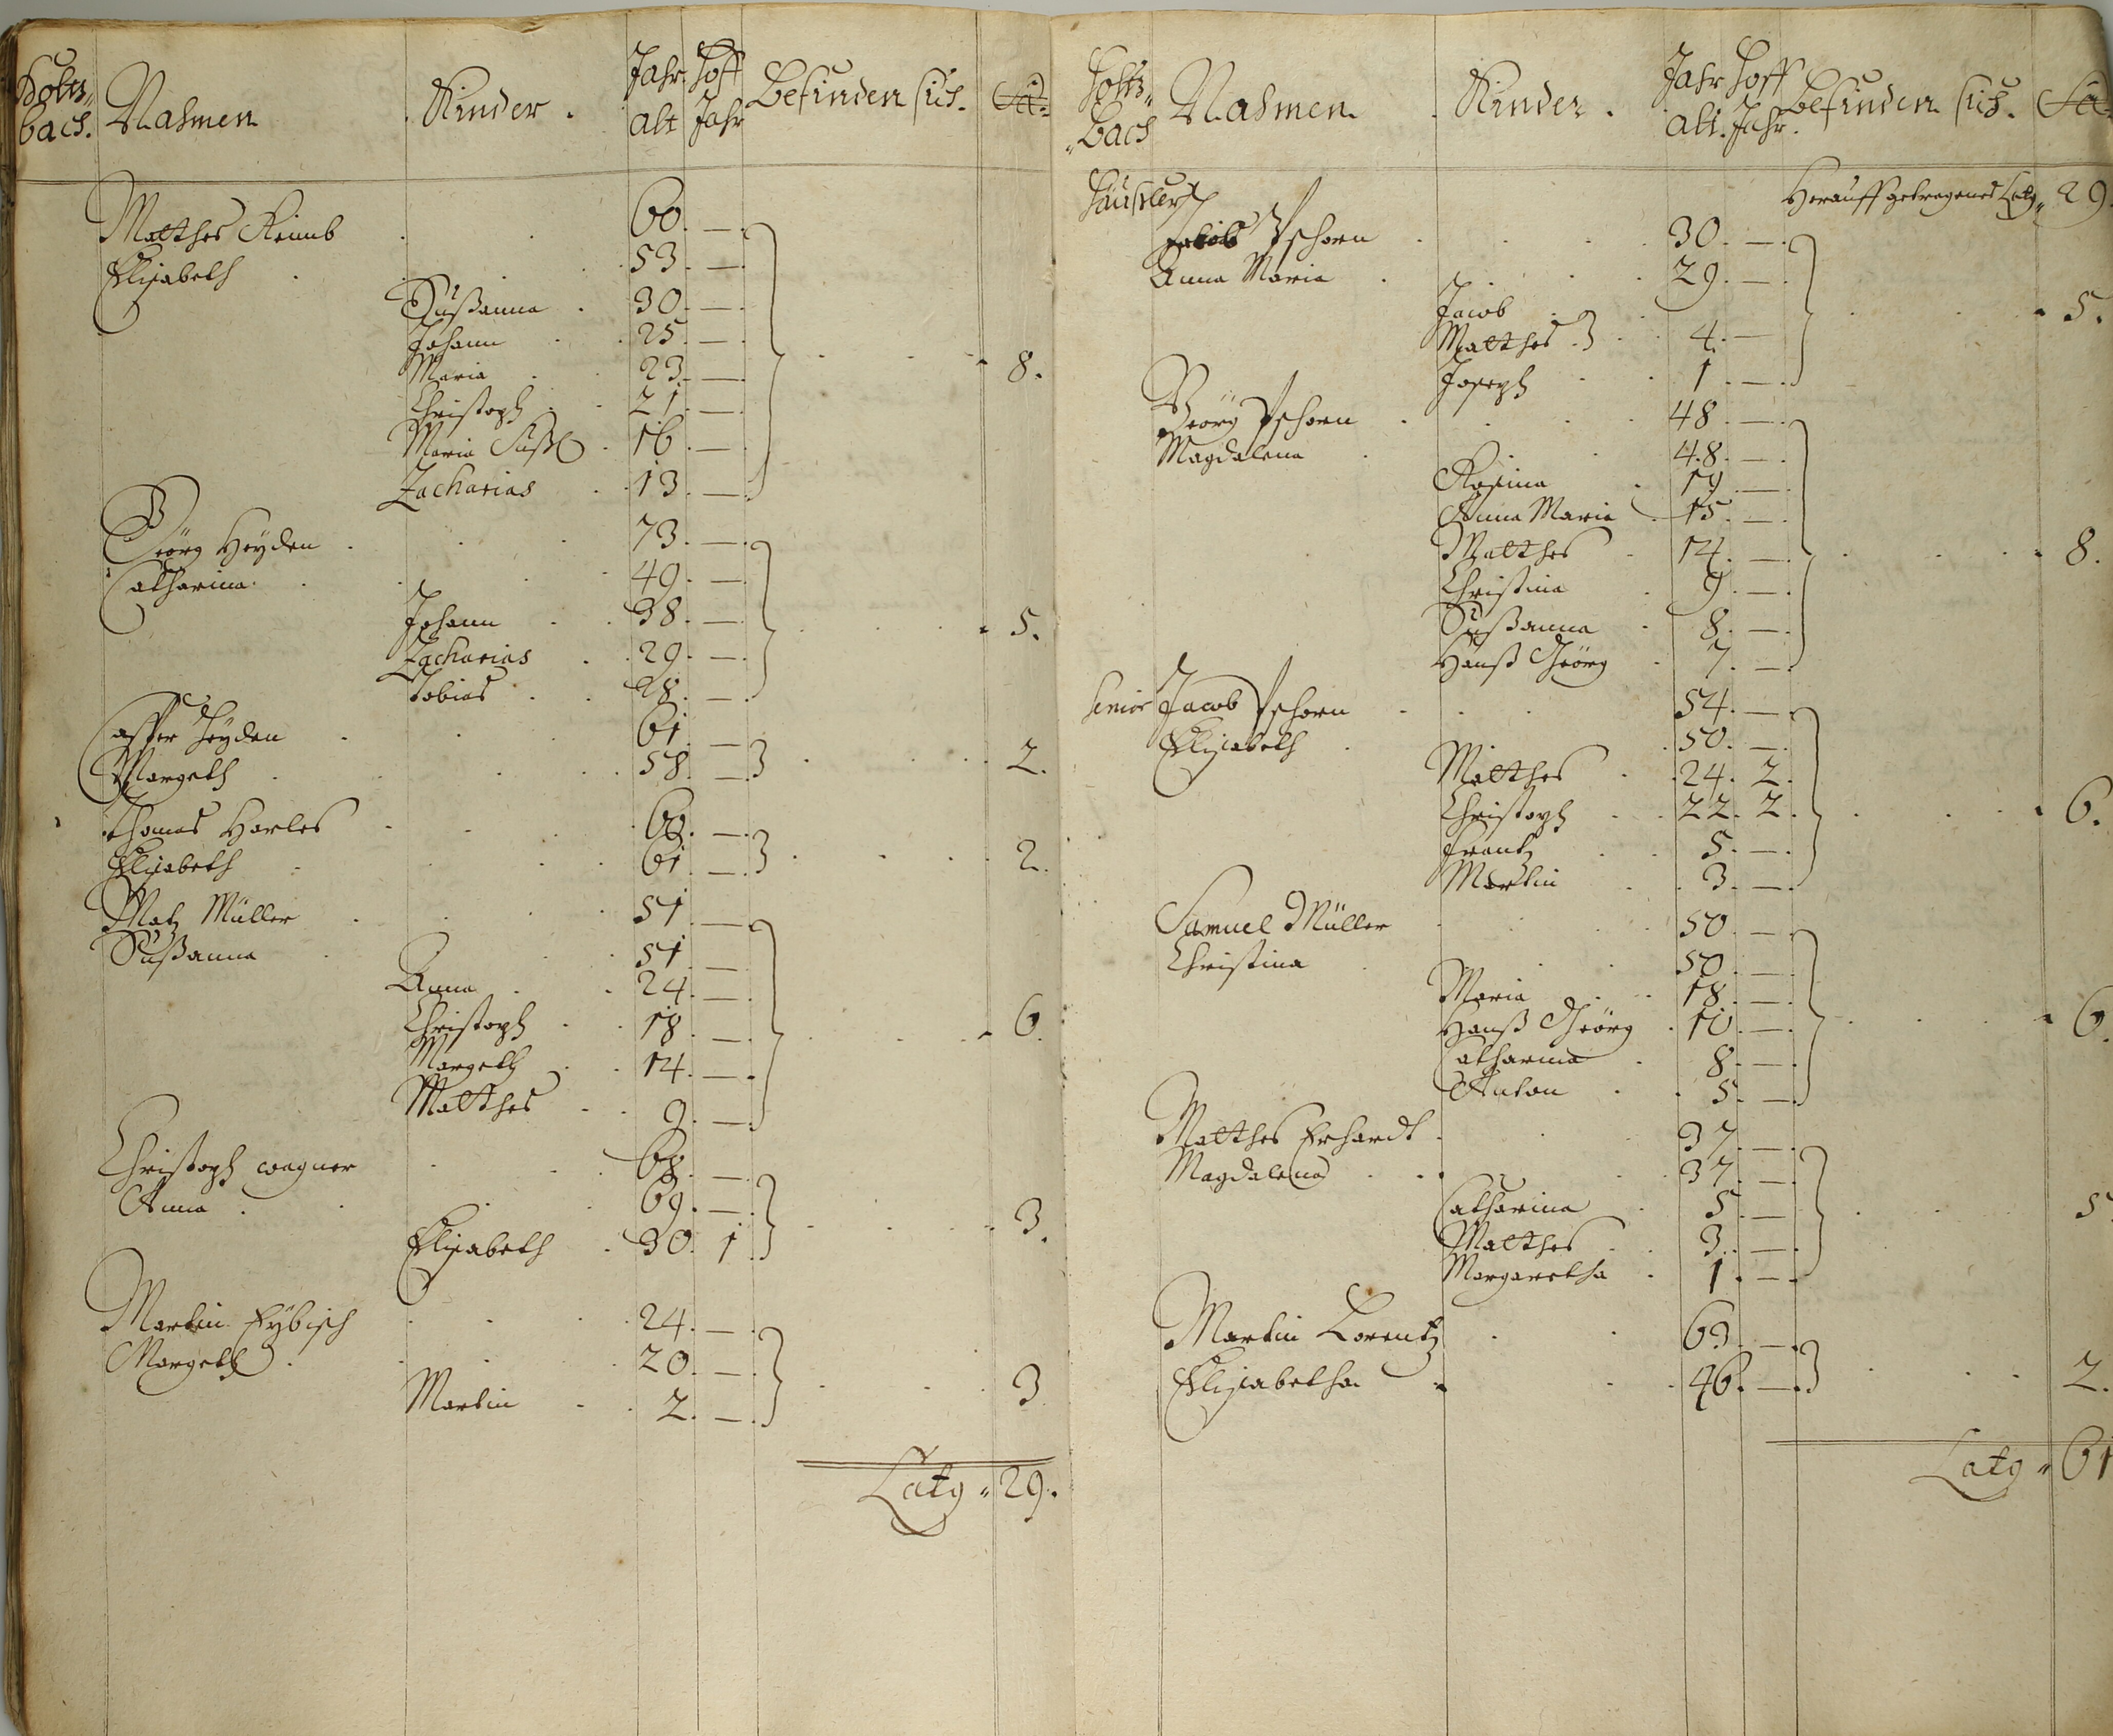 Holtz-
bach. Nahmen Kinder. Jahr alt Hoff Jahr Befinden sich. Sa.
Matthes Reimb . . 60. —.
Elisabeth . . . 53. —.
Sußanna . 30. —.
Johann . . 25. —.
Maria . . 23. —. . . . 8.
Christoph . . 21. —.
Maria Suß . 16. —.
Zacharias . . 13. —.
Georg Heyden . . . 73. —.
Catharina . . . 49. —.
Johann . . 38. —. . . . 5.
Zacharias . . 29. —.
Tobias . . 28. —.
Casper Heyden . . 61. —.
Margeth . . . 58. —. . . . 2.
Thomas Harles . . . 68. —.
Elisabeth . . . 61. —. . . . 2.
Matz Müller . . . 51. —.
Sußanna . . . 51. —.
Anna . . 24. —.
Christoph . . 18. —. . . . 6.
Margeth . . 14. —.
Matthes . . 9. —.
Christoph wagner . . . 68. —.
Anna . . . 69. —. . . . 3.
Elisabeth . 30. 1.
Martin Eybisch . . . 24. —.
Margeth . . . 20. —. . . . 3
Martin . . 2. —.
Latg. 29.
Holtz-
bach Nahmen. Kinder. Jahr alt. Hoff Jahr. Befinden sich. Sa.
Häußler Herauff getragenes Latg. 29.
Jacob Pschorn . . . 30. —.
Anna Maria . . . 29. —.
Jacob . . . . . 5.
Matthes . . 4. —
Joseph . . 1. —.
Georg Pschorn . . . 48. —.
Magdalena . . . 48. —.
Rosina . 19. —.
Anna Maria . 15. —.
Matthes . 14. —. . . . 8.
Christina . 9. —.
Sußanna . 8. —.
Hanß Georg . 7. —.
Senior Jacob Pschorn . . . 54. —.
Elisabeth . . . 50. —.
Matthes . . 24. 2.
Christoph . . 22. 2. . . . 6.
Frantz . . 5. —.
Martin . . 3. —.
Samuel Müller . . . 50. —.
Christina . . . 50. —.
Maria . . 18. —.
Hanß Georg . 10. —. . . . 6.
Catharina . 8. —.
Anton . . 5. —.
Matthes Erhardt . . . 37. —.
Magdalena . . . 37. —.
Catharina . 5. —. . . . 5
Matthes . . 3. —.
Margaretha . 1. —.
Martin Lorentz . . 63. —.
Elisabetha . . . 46. —. . . . 2.
Latg. 61